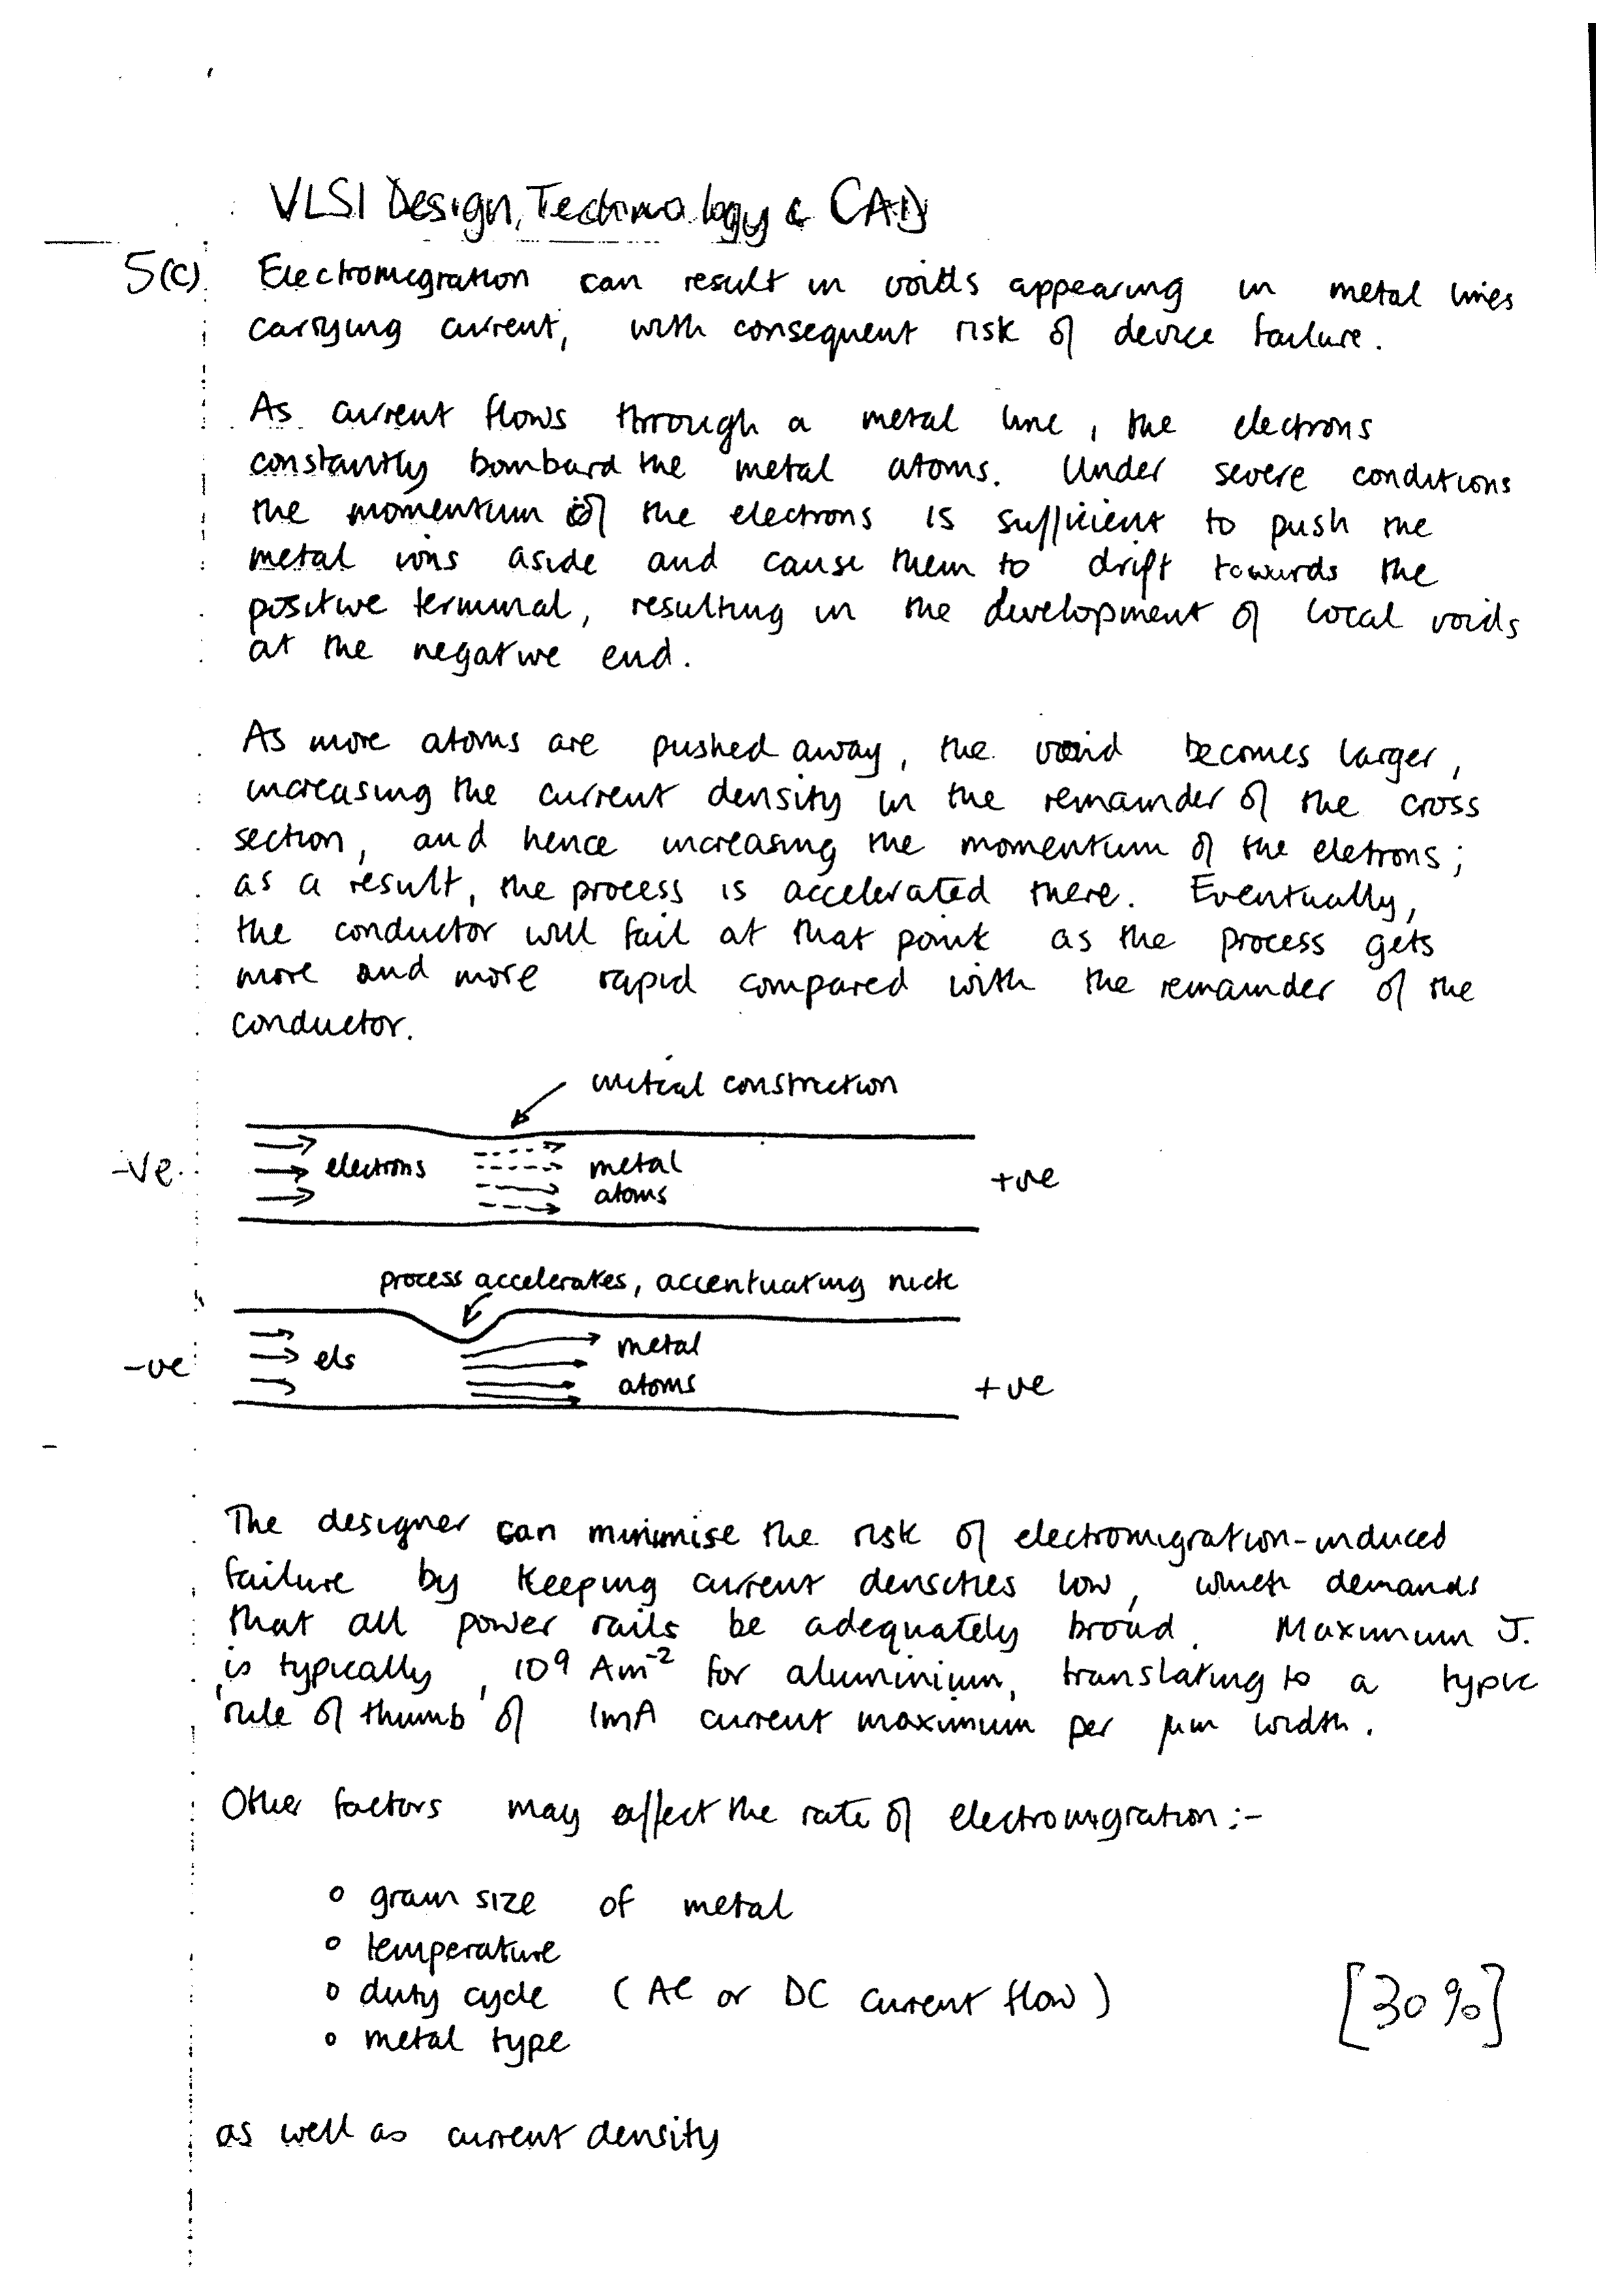 VLSI Design, Technology & CAD
5(c) Electromigration can result in voids appearing in metal lines
carrying current, with consequent risk of device failure.
As current flows through a metal line, the electrons
constantly bombard the metal atoms. Under severe conditions
the momentum of the electrons is sufficient to push the
metal ions aside and cause them to drift towards the
positive terminal, resulting in the development of local voids
at the negative end.
As more atoms are pushed away, the void becomes larger,
increasing the current density in the remainder of the cross
section, and hence increasing the momentum of the eletrons;
as a result, the process is accelerated there. Eventually,
the conductor will fail at that point as the process gets
more and more rapid compared with the remainder of the
conductor.
initial construction
-ve electrons metal +ve
atoms
process accelerates, accentuating nick
-ve els metal
atoms +ve
The designer can minimise the risk of electromigration-induced
failure by keeping current densities low, which demands
that all power rails be adequately broad. Maximum J.
is typically 10⁹ Am⁻² for aluminium, translating to a typic
'rule of thumb' of 1mA current maximum per μm width.
Other factors may affect the rate of electromigration:-
o grain size of metal
o temperature
o duty cycle (AC or DC current flow) [30%]
o metal type
as well as current density